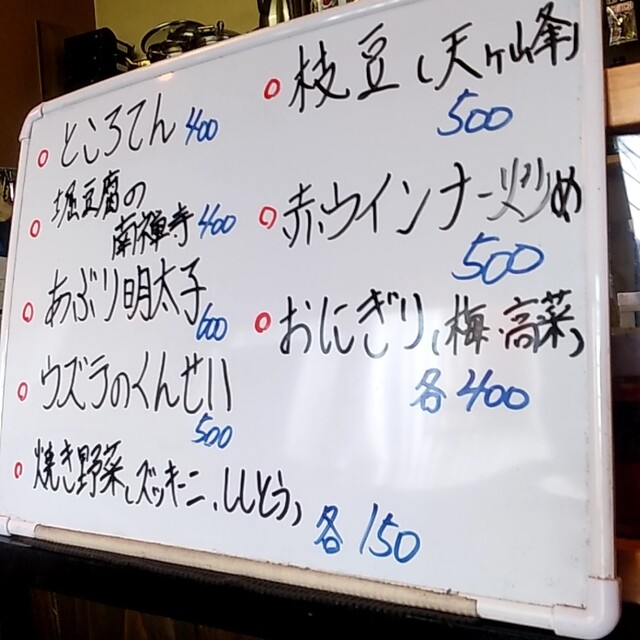 ○ ところてん 400
○ 堀豆腐の
南禅寺 400
○ あぶり明太子
600
○ ウズラのくんせい
500
○ 焼き野菜(ズッキーニ、ししとう)
各150
○ 枝豆(天ヶ峰)
500
○ 赤ウインナー炒め
500
○ おにぎり(梅・高菜)
各400